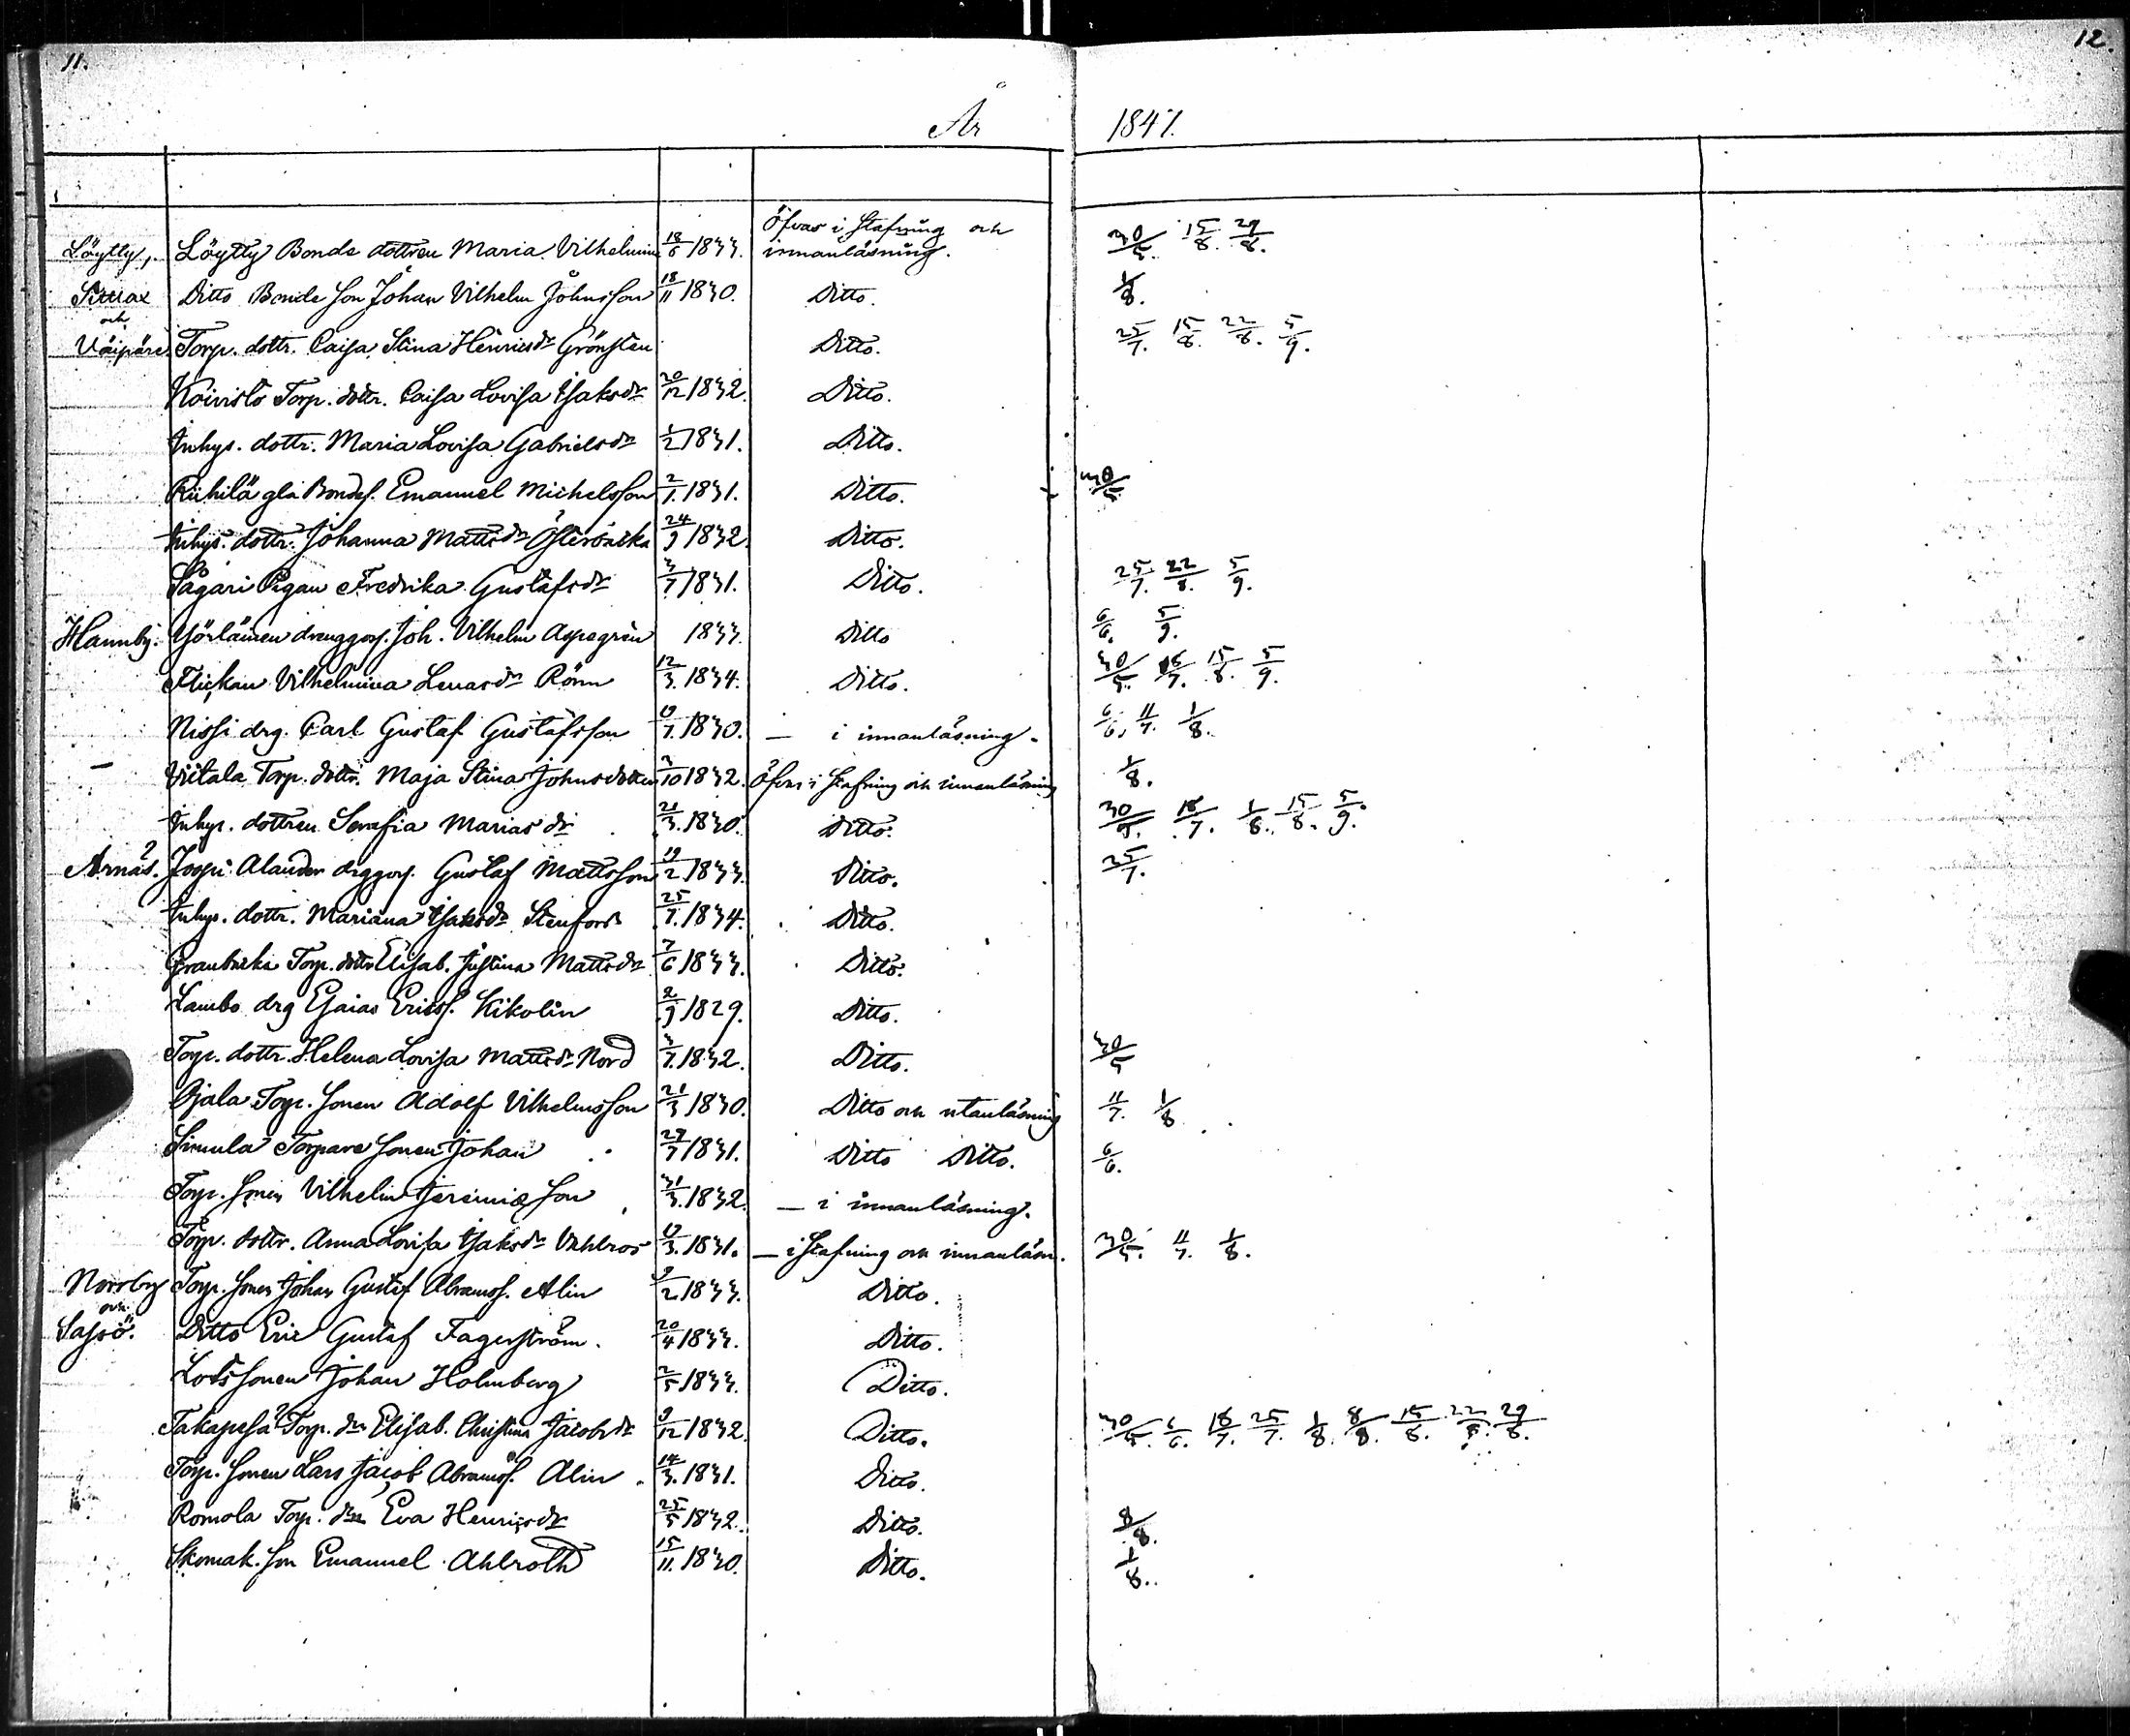 11.
12.
År 1847.
Löytty, Löytty Bonde dottren Maria Vilhelmina 18/6 1833. Öfvas i stafning och innanläsning. 30/5. 15/8. 29/8.
Sirnax Ditto Bonde son Johan Vilhelm Johnsson 18/11 1830. Ditto. 1/8.
och
Väipäre Torp. dottr. Caisa Stina Henricsdr Grönsten Ditto. 25/7. 15/8. 22/8. 5/9.
Koivisto Torp. dottr. Caisa Lovisa Isaksdr 20/12 1832. Ditto.
Inhys. dottr. Maria Lovisa Gabrielsdr 1/2 1831. Ditto.
Riihilä gla Bondes. Emanuel Michelsson 2/1. 1831. Ditto. 30/5.
Inhys. dottr. Johanna Mattsdr 24/9 1832. Ditto.
Sågari Pigan Fredrika Gustafsdr 3/7 1831. Ditto. 25/7. 22/8. 5/9.
Hannby. Yörläinen drenggoss. Joh. Vilhelm Aspegrén 1833. Ditto 6/6. 5/9.
Flickan Vilhelmina Lenasdr Rönn 12/3. 1834. Ditto. 30/5. 18/7. 15/8. 5/9.
Nissi drg. Carl Gustaf Gustafsson 19/7. 1830. — i innanläsning. 6/6. 11/7. 1/8.
— Viitala Torp. dottr. Maja Stina Johnsdotter 3/10 1832. Öfvas i stafning och innanläsning 1/8.
Inhys. dottren Serafia Mariasdr 21/3. 1830. Ditto. 30/5. 18/7. 1/8. 15/8. 5/9.
Arnäs. Jospi Alander drggoss. Gustaf Mattsson 19/2 1833. Ditto. 25/7.
Inhys. dottr. Mariana Isaksdr Stenfors 25/7. 1834. Ditto.
Granbacka Torp. dottr Elisab. Justina Mattsdr 7/6 1833. Ditto.
Lambo drg Esaias Ericss. Kikolin 2/9 1829. Ditto.
Torp. dottr. Helena Lovisa Mattsdr Nord 3/7. 1832. Ditto. 30/5
Ojala Torp. sonen Adolf Vilhelmsson 21/3 1830. Ditto och utanläsning 11/7. 1/8
Simula Torpare sonen Johan 29/7 1831. Ditto Ditto. 6/6.
Torp. sonen Vilhelm Jeremiæson 31/3. 1832. — i innanläsning.
Torp. dottr. Anna Lovisa Isaksdr Vahlros 19/3. 1831. — i stafning och innanläsn. 30/5. 11/7. 1/8.
Norrby Torp. sonen Johan Gustaf Abramss. Alin 9/2. 1833. Ditto.
och
Satsö. Ditto Eric Gustaf Fagerström. 20/4 1833. Ditto.
Lotssonen Johan Holmberg 2/5 1833. Ditto.
Takapesä Torp. dr Elisab. Christina Jacobsdr 9/12 1832. Ditto. 30/5. 6/6. 18/7. 25/7. 1/8. 8/8. 15/8. 22/8. 29/8.
Torp. sonen Lars Jacob Abramss. Alin 14/3. 1831. Ditto.
Romola Torp. dr Eva Henricsdr 25/5 1832. Ditto. 8/8.
Skomak. son Emanuel Ahlroth 15/11. 1830. Ditto. 1/8.